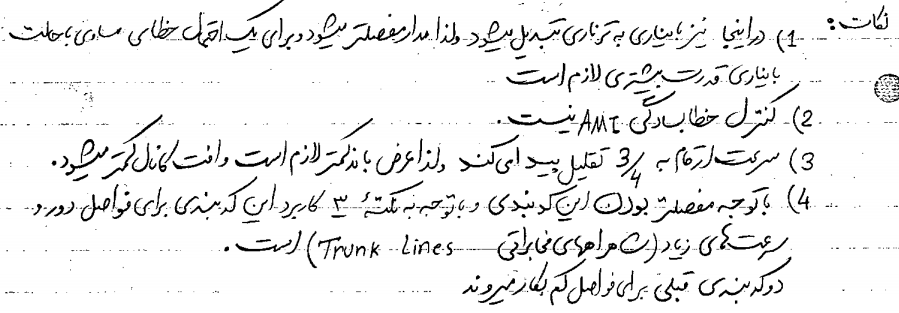 نکات: 1) در اینجا نیز بایناری به ترناری تبدیل میشود ولذا مدار مفصلتر میشود و برای یک احتمال خطای مساوی با حالت
بایناری قدرت بیشتری لازم است
2) کنترل خطا بسادگی AMI نیست.
3) سرعت ارقام به 3/4 تقلیل پیدا می‌کند ولذا عرض باند کمتر لازم است و افت کانال کمتر میشود.
4) با توجه مفصلتر بودن این کدبندی و با توجه به نکتهٔ ۳ کاربرد این کدبندی برای فواصل دور و
سرعتهای زیاد (شاهراههای مخابراتی Trunk Lines) است.
دو کدبندی قبلی برای فواصل کم بکار میروند